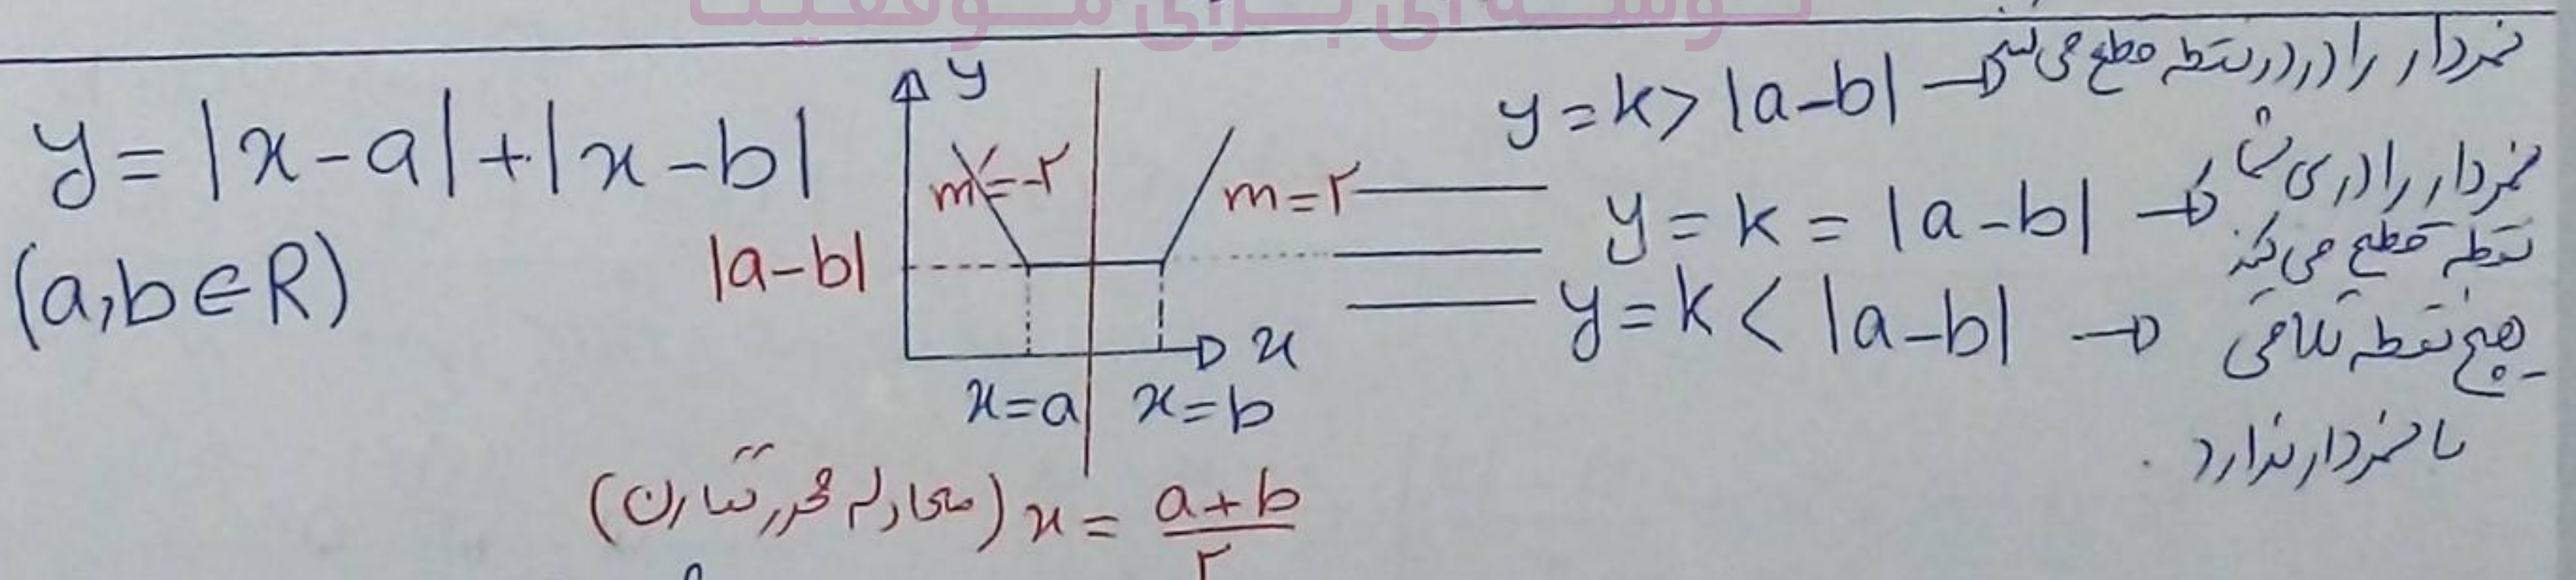 توشه ای برای موفقیت
y = |x-a| + |x-b|
(a,b∈R)
y
m=-۲
m=۲
|a-b|
x
x=a
x=b
x = (a+b)/۲ (معادله محور تقارن)
y=k>|a-b| → نمودار را در دو نقطه قطع می کند
y=k=|a-b| → نمودار را در بی شمار
نقطه قطع می کند
y=k<|a-b| → هیچ نقطه تلاقی
با نمودار ندارد.